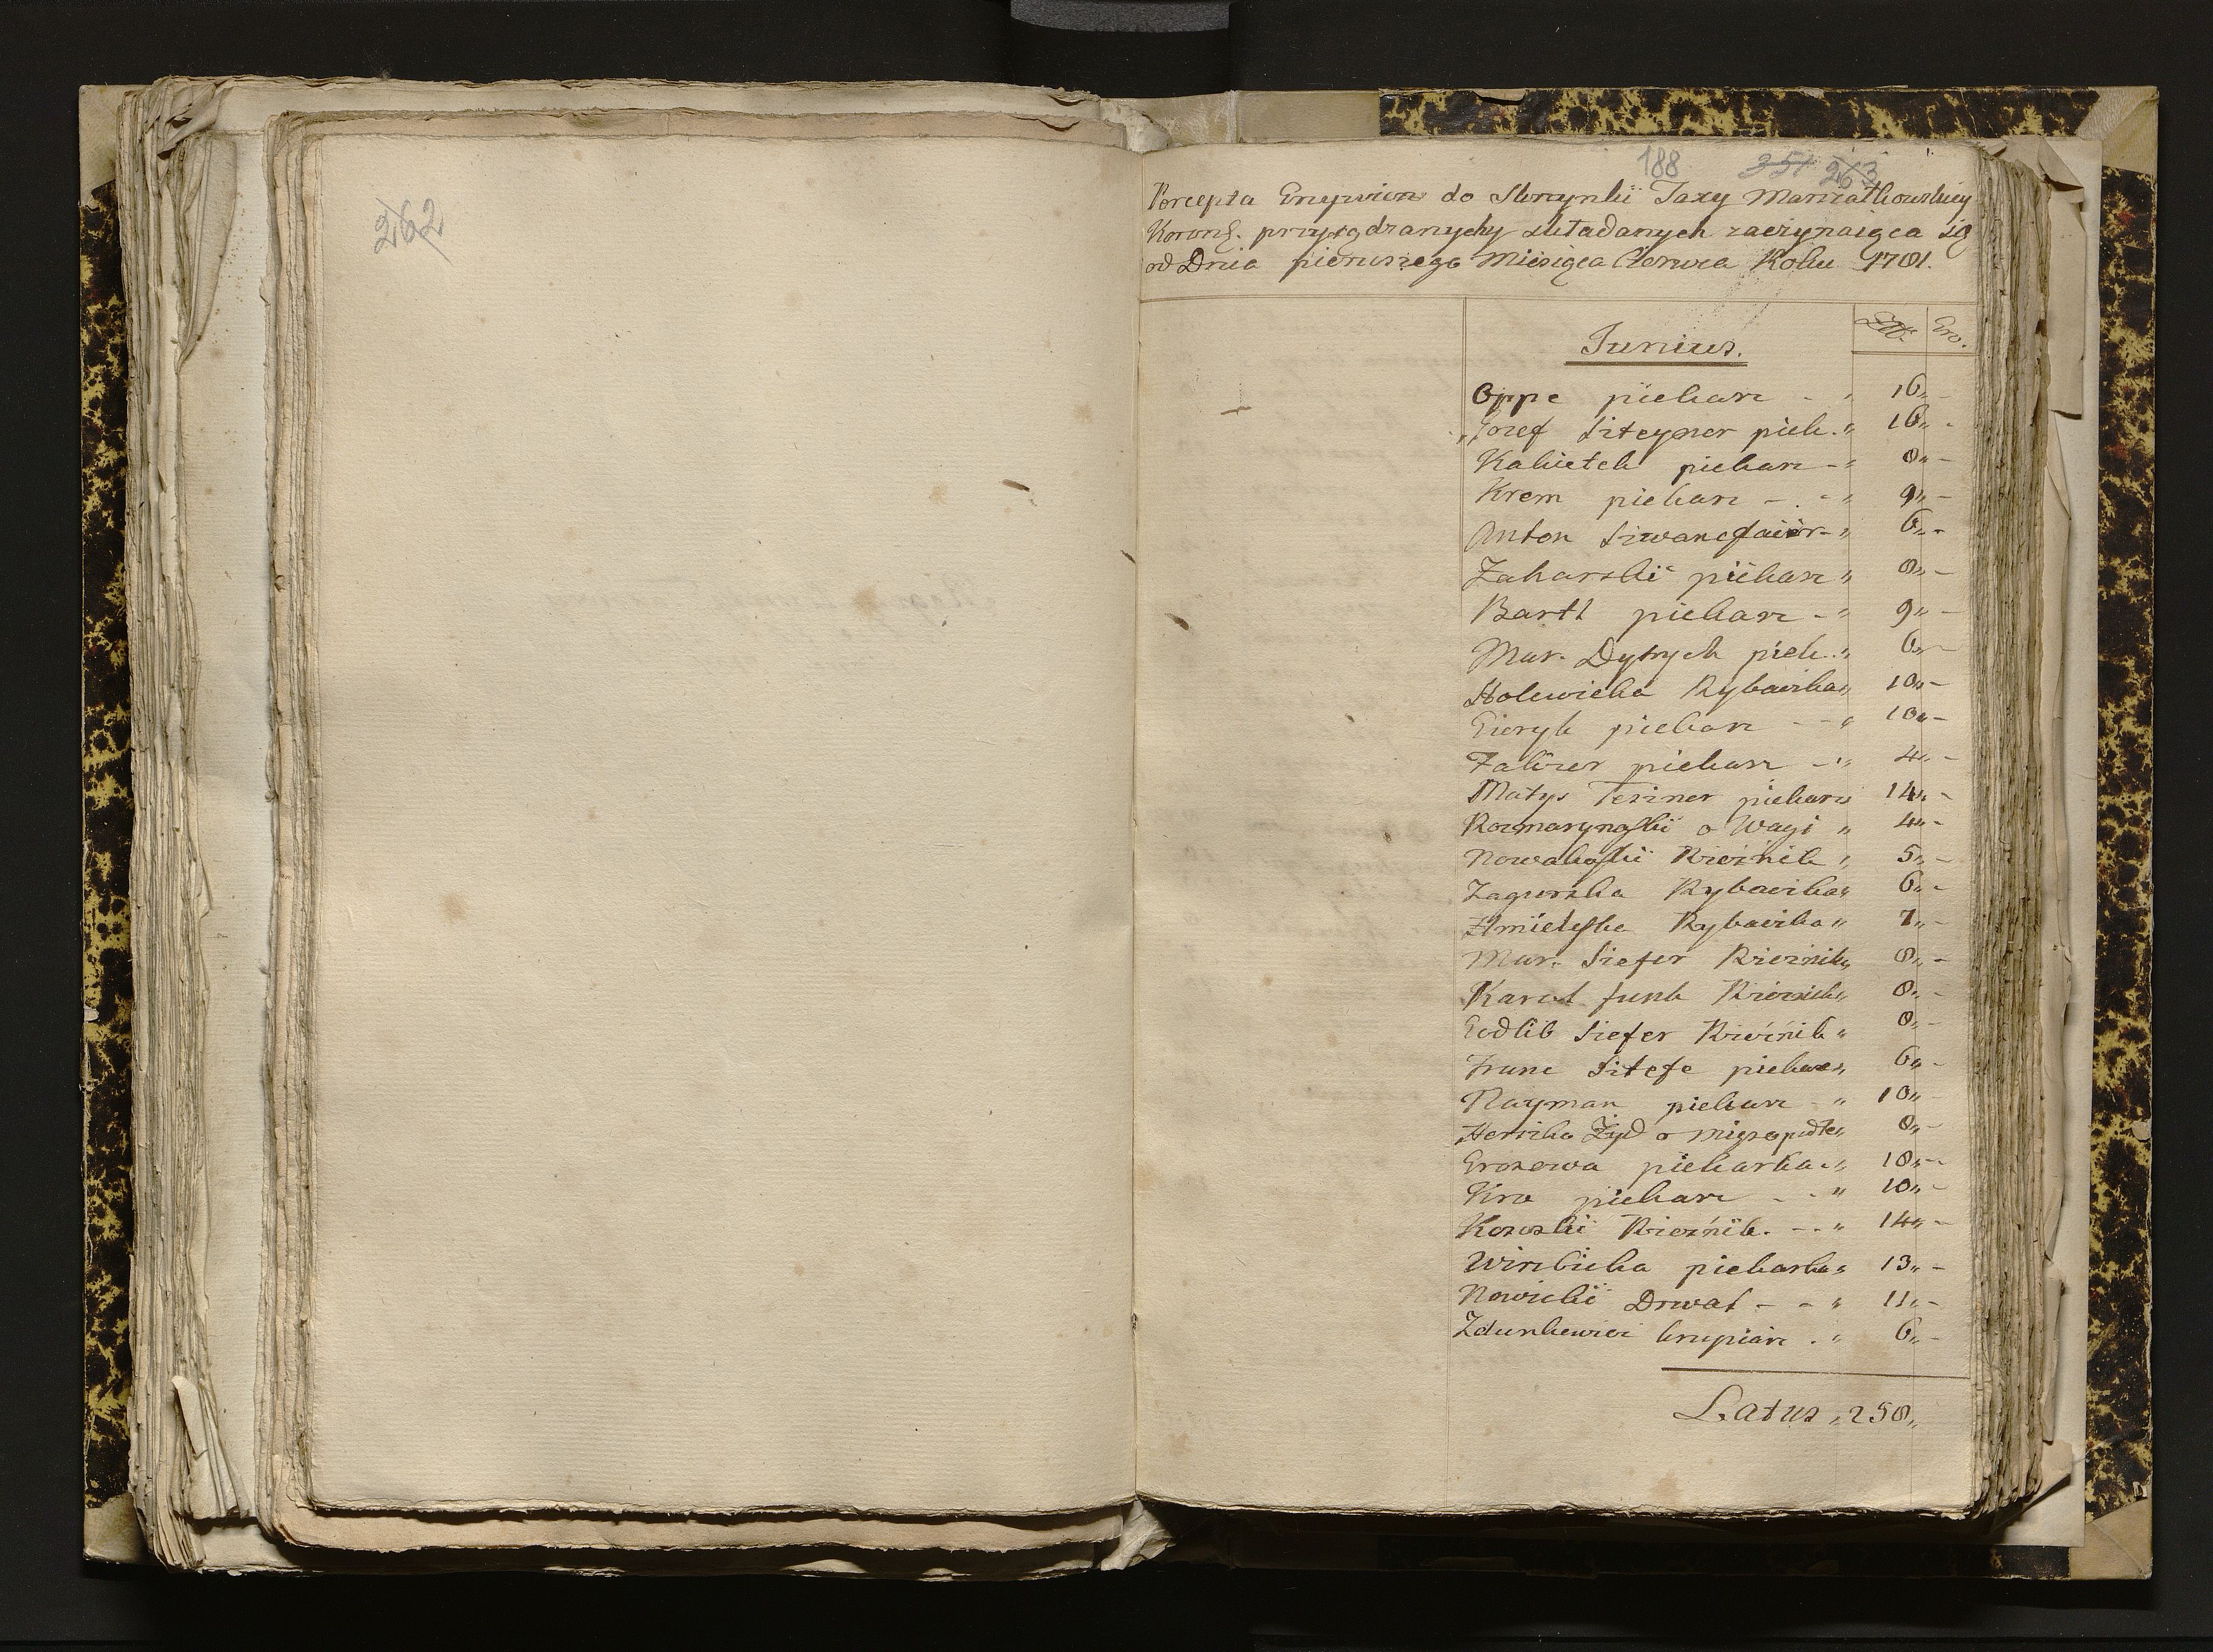 262
188 351 263
Percepta Grzywien do Skrzynki Taxy Marszałkowskiey
Koronȩ. przysądzanych, składanych zaczynaiąca się
od Dnia pierwszego Miesiąca Czerwca Roku 1781.
Złł. Gro.
Junius.
Oppe piekarz - „ 16„ -
Jozef Szteyner piek. „ 16„ -
Kakietek piekarz - „ 8„ -
Krem piekarz - - „ 9„ -
Anton Szwancfaier - „ 6„ -
Zakarski piekarz „ 8„ -
Bartl piekarz - „ 9„ -
Mar. Dytrych piek. „ 6„ -
Holewicka Rybaczka „ 10„ -
Gieryk piekarz - - „ 10„ -
Falszer piekarz - „ 4„ -
Matys Teziner piekarz 14„ -
Rozmarynoski o Wagi „ 4„ -
Nowakoski Rzeznik „ 5„ -
Zagurska Rybaczka „ 6„ -
Hmieleska Rybaczka „ 7„ -
Mar. Szefer Rzeznik „ 8„ -
Karol funk Rzeznik „ 8„ -
Godlib Szefer Rzeźnik „ 8„ -
Franc Sztefe piekarz „ 6„ -
Nayman piekarz - „ 10„ -
Herszko Żyd o mięso podłe „ 8„ -
Grosowa piekarka - „ 18„ -
Kro piekarz - - „ 10„ -
Kososki Rzeźnik. - - „ 14„ -
Wirzbicka piekarka „ 13„ -
Nowicki Drwal - - „ 11„ -
Zdunkiewicz krupiarz . „ 6„ -
Latus „ 258„